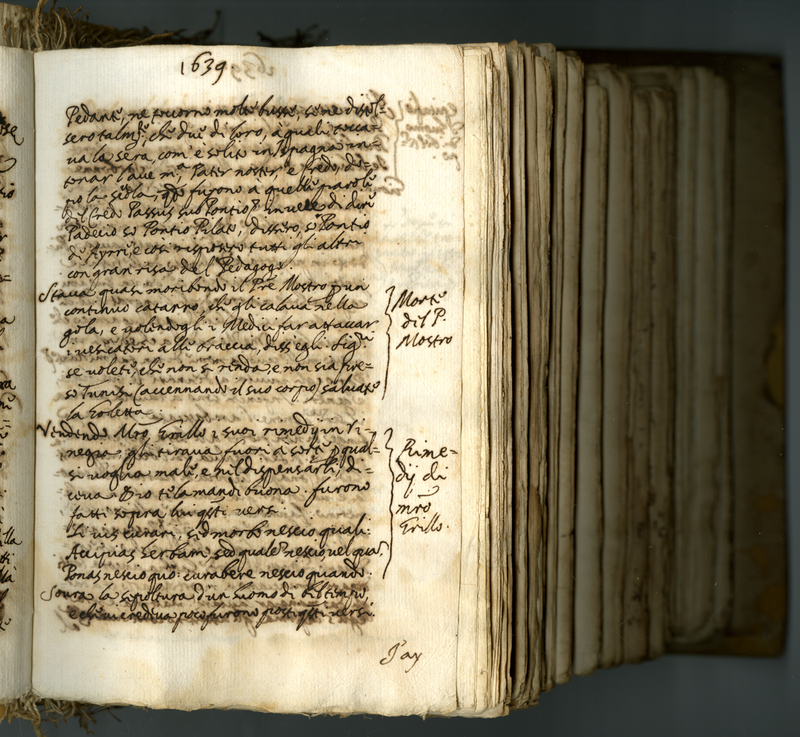 1639
Pedante, ne toccorno molte busse, se ne disol-
sero talm.te, che due di loro, à quali tocca-
ua la sera, com'è solito in Ispagna in-
tonar l'aue m.a, Pater noster, e Credo, do-
po la furono a quelle parole
del Credo Passus sub Pontio, in uece di dire
Padecio so Pontio Pilato, dissero, so Pontio
di e cosi risposero tutti gli altri
con gran risa del Pedagogo.
Staua quasi moribondo il Pre Mostro p un
continuo catarro, che gli calaua nella
gola, e uolendogli i Medici far attaccar
i uesicatorii alle braccia, diss'egli. Sig.ri
se uolete, che non si renda, e non sia pre-
so Tunisi (accennando il suo corpo) saluate
la Goletta.
Vendendo Mro Grillo i suoi rimedij in Vi-
negia gli tiraua fuori à sorte p qual-
si uoglia male, e nel dispensarli, di-
ceua Dio te la mandi buona. furono
fatti sopra lui qsti uersi
Si uis curari, sed morbo nescio quali
Accipias herbam, sed quale nescio uel qua
Ponas nescio quo: curabere nescio quando.
Soura la sepoltura d'un huomo di bel tempo,
e che ui credeua poco furono posti qsti uersi.
Morte
del P.
Mostro
Rime-
dij di
mro
Grillo.